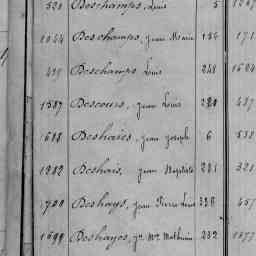 521 Deschamps, Louis 5
1044 Deschamps, Jean Marie 154 171
437 Deschamps Louis 248 1624
1587 Descours, Jean Louis 280 437
688 Deshaies, Jean Joseph 6 538
1282 Deshais, Jean Baptiste 281 321
700 Deshays, Jean Pierre Louis 326 457
1599 Deshayes, Jn Me Mathurin 232 1577